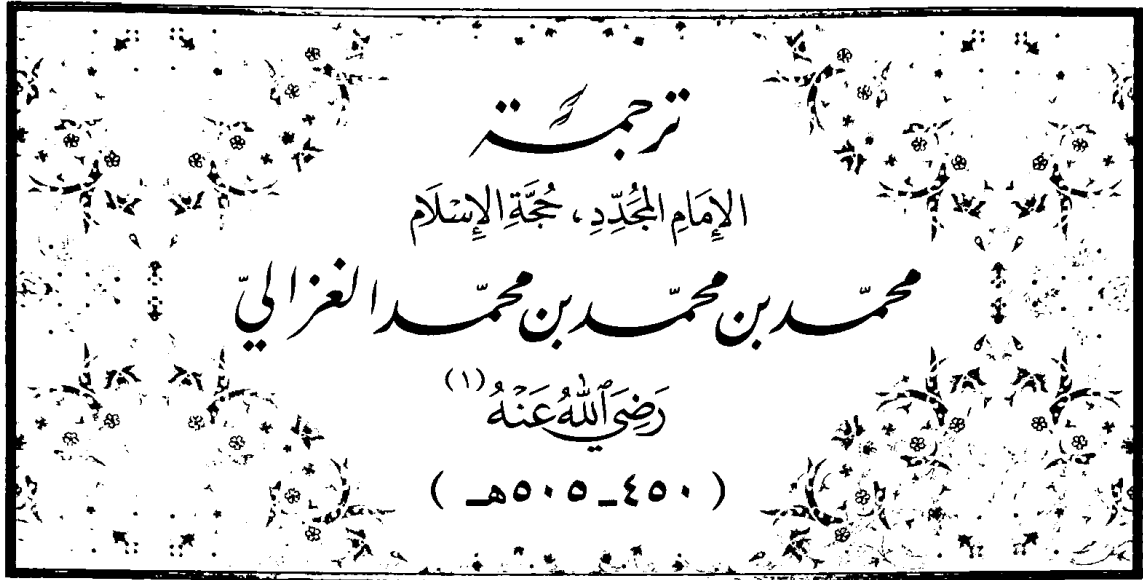 ترجمة
الإِمَامِ المُجَدِّدِ، حُجَّةِ الإِسْلَامِ
محمّد بن محمّد بن محمّد الغزاليّ
رَضِيَ ٱللَّهُ عَنْهُ (١)
( ٤٥٠ ـ ٥٠٥هـ )